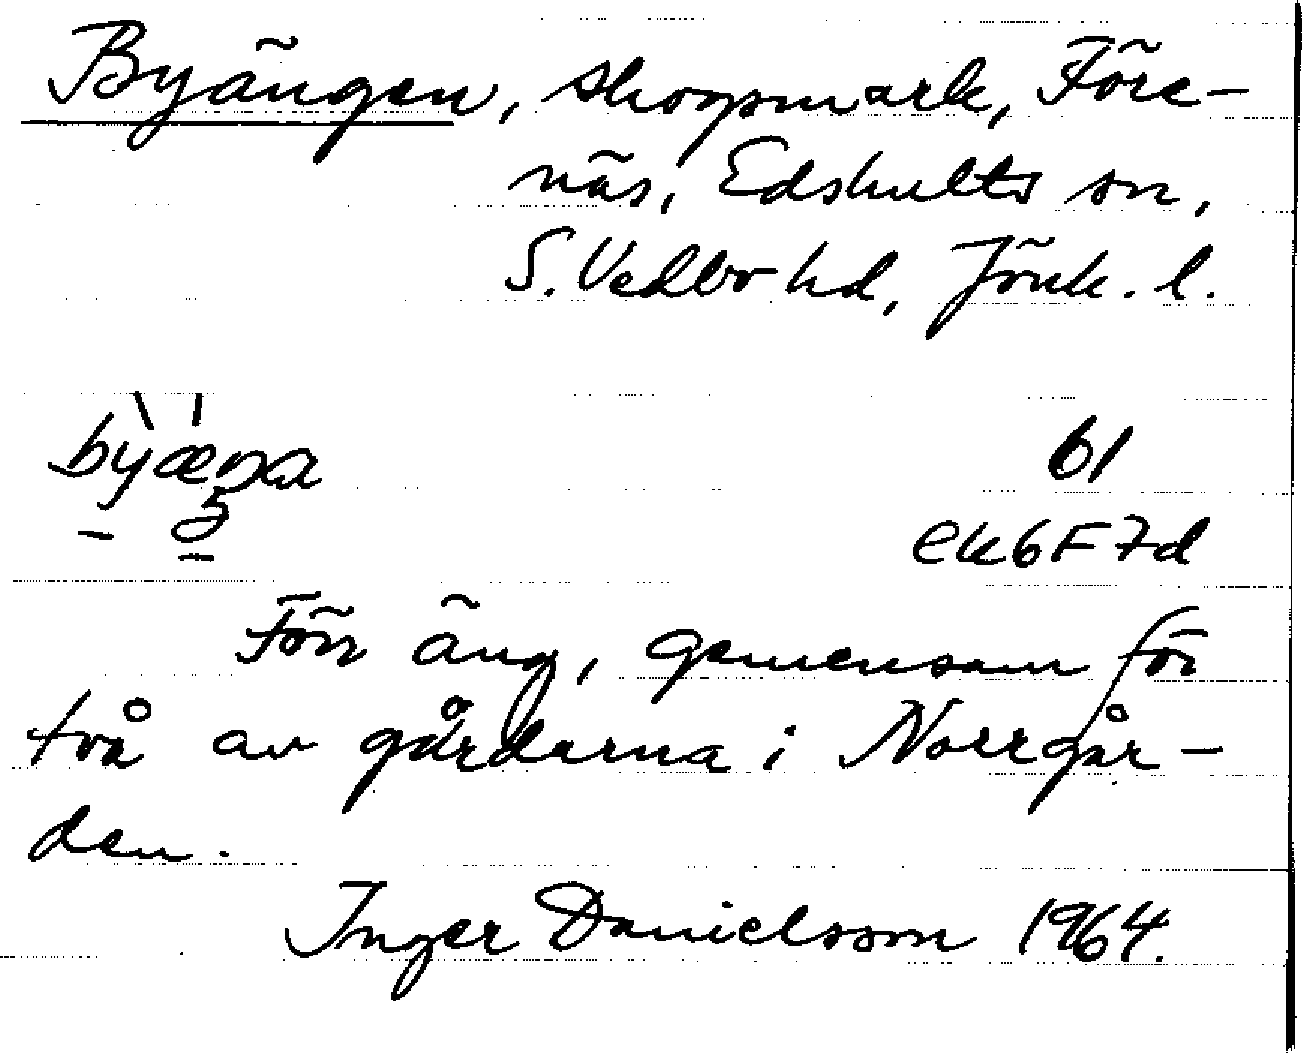 Byängen, skogsmark, Före-
näs, Edshults sn,
S. Vedbo hd, Jönk. l.
by̖æŋa 61
ek6F7d
Förr äng, gemensam för
två av gårdarna i Norrgår-
den.
Inger Danielsson 1964.